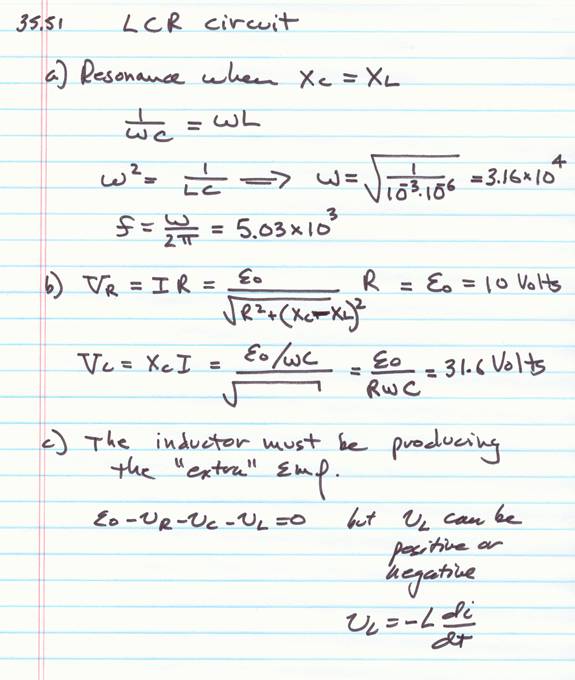 35.51 LCR circuit
a) Resonance when Xc = XL
1/ωC = ωL
ω² = 1/LC ⟹ ω = √(1/(10⁻³·10⁻⁶)) = 3.16×10⁴
f = ω/2π = 5.03×10³
b) VR = IR = ε₀/√(R²+(Xc-XL)²) R = ε₀ = 10 Volts
Vc = Xc I = (ε₀/ωC)/√ = ε₀/RωC = 31.6 Volts
c) The inductor must be producing
the "extra" Emf.
ε₀ - VR - Vc - VL = 0 but VL can be
positive or
negative
VL = -L di/dt